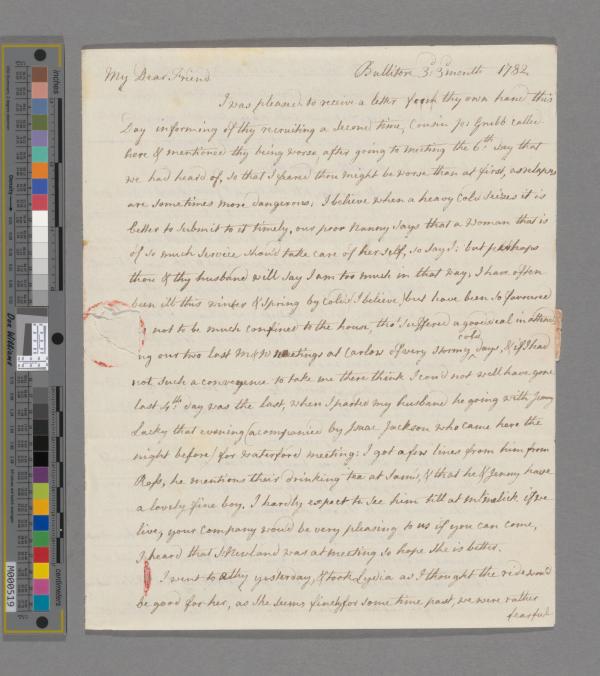 My Dear Friend
Ballitore 3d 3d month 1782
I was pleased to receive a letter from thy own hand this
Day informing of thy recruiting a Second time, Cousin Jos: Grubb called
here & mentioned thy being worse, after going to meeting the 6th day that
we had heard of, so that I feared thou might be worse than at first, as relapses
are sometimes more dangerous; I believe when a heavy Cold seizes it is
better to submit to it timely, our poor Nanny says that a woman that is
of so much Service should take care of herself, so say I: but perhaps
thou & thy husband will say I am too much in that way, I have often
been ill this winter & Spring by colds I believe, but have been so favoured
not to be much confined to the house, tho' suffered a good deal in attend
ing our two last meetings at Carlow of very stormy cold days, & if I had
not such a conveyence to take me there think I cou'd not well have gone
last 4th day was the last, when I parted my husband he going with Jenny
Lecky that evening (acompanied by Isaac Jackson who came here the
night before) for waterford meeting: I got a few lines from him from
Ross, he mentions their drinking tea at Sam's, & that he & Jenny have
a lovely fine boy. I hardly expect to see him till at Limerick if we
live, your Company wou'd be very pleasing to us if you can come,
I heard that S Newland was at meeting so hope she is better.
I went to Athy yesterday, & took Lydia as I thought the ride wou'd
be good for her, as she seems for some time past, we were rather
fearful
inches
centimeters
Don Williams
M000519